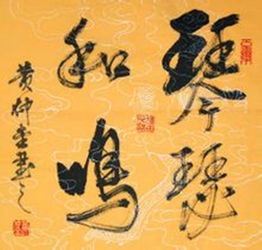 琴瑟
和鸣
黄仲金书之